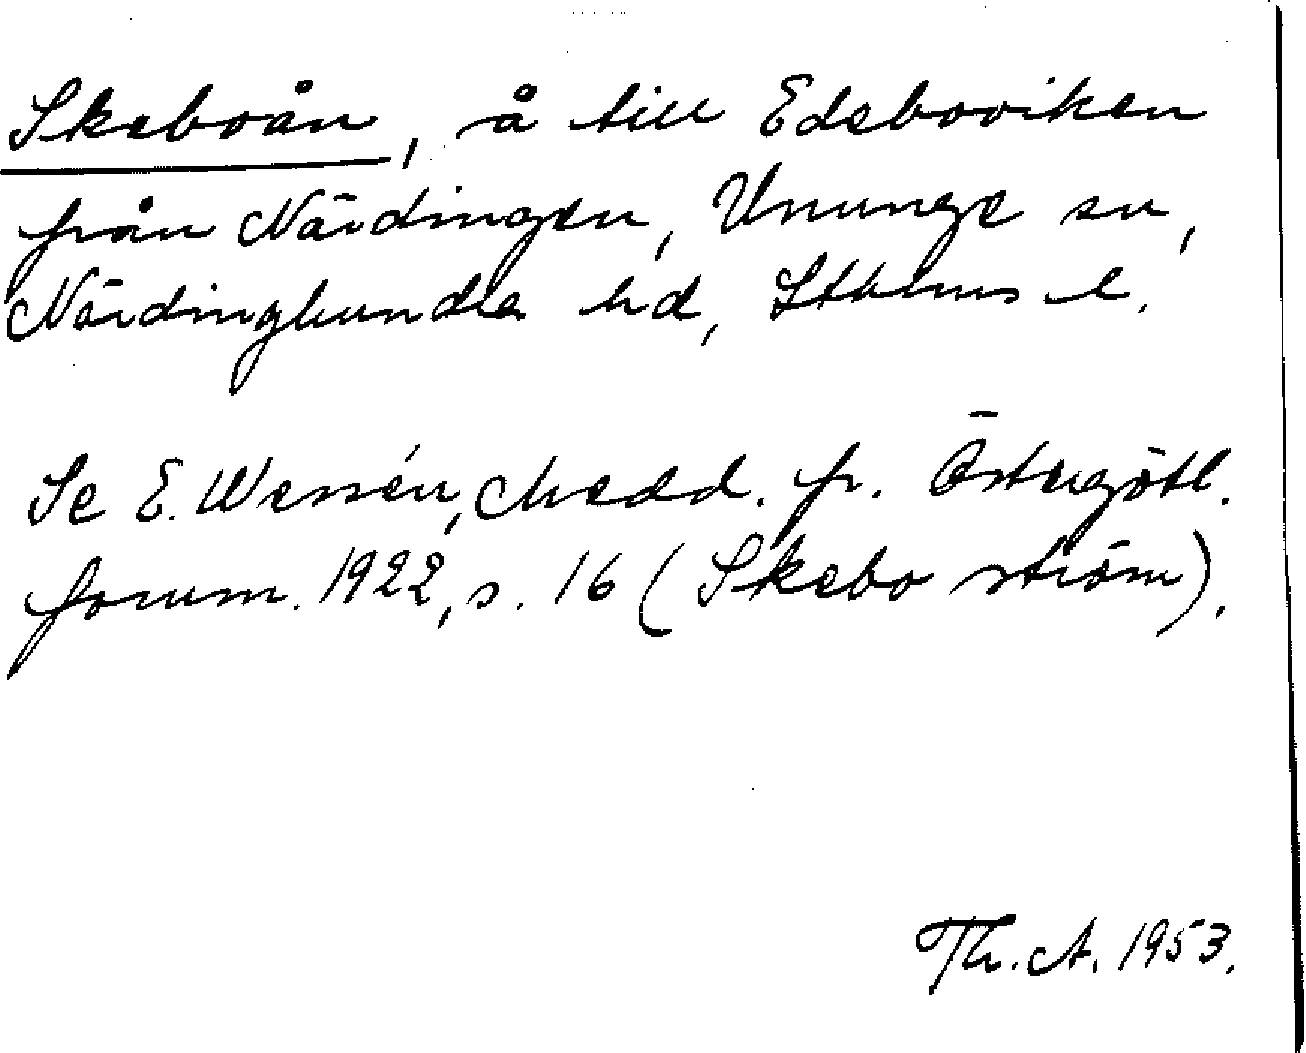 Skeboån, å till Edeboviken
från Närdingen, Ununge sn,
Närdinghundra hd, Sthlms l.
Se E. Wessén, Medd. fr. Östergötl.
fornm. 1922, s. 16 (Skebo ström).
Th. A. 1953.